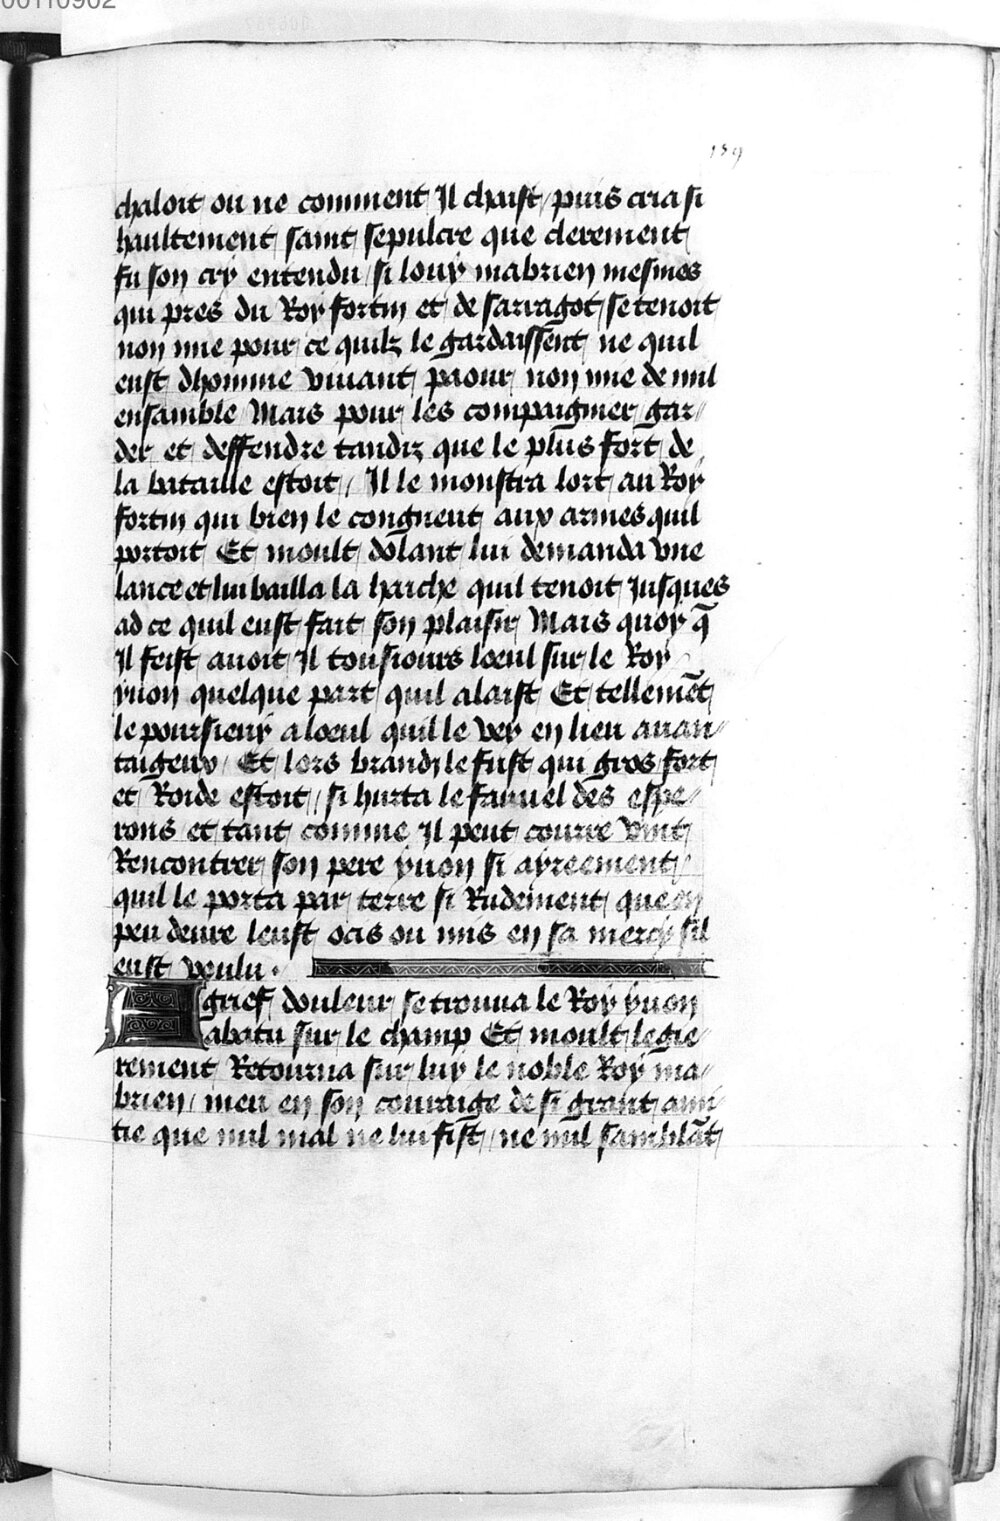 00110902
159
chaloit ou ne comment Il chaist / puis cria si
haultement saint sepulcre que clerement
fu son cry entendu / si louy mabrien mesmes
qui pres du Roy fortin et de sarragot se tenoit
non mie pour ce quilz le gardaissent ne quil
eust dhomme viuant paour non mie de mil
ensamble Mais pour les compaignier gar-
der et deffendre tandiz que le plus fort de
la bataille estoit / Il le monstra lort au Roy
fortin qui bien le congneut aux armes quil
portoit Et moult dolant lui demanda vne
lance et lui bailla la haiche quil tenoit Jusques
ad ce quil eust fait son plaisir Mais quoy q̃
Il feist auoit Il tousiours loeul sur le Roy
yuon quelque part quil alaist Et tellemẽt
le poursieuy a loeul quil le vey en lieu auan-
taigeux / Et lors brandy le fust qui gros fort
et Roide estoit / si hurta le fauuel des espe-
rons et tant comme Il peut courre vint
Rencontrer son pere yuon si ayreement
quil le porta par terre si Rudement que en
peu deure leust ocis ou mis en sa mercy sil
eust voulu .
A grief douleur se trouua le Roy yuon
abatu sur le champ Et moult legie-
rement Retourna sur luy le noble Roy ma-
brien / meu en son couraige de si grant ami-
tie que nul mal ne lui fist / ne nul samblãt